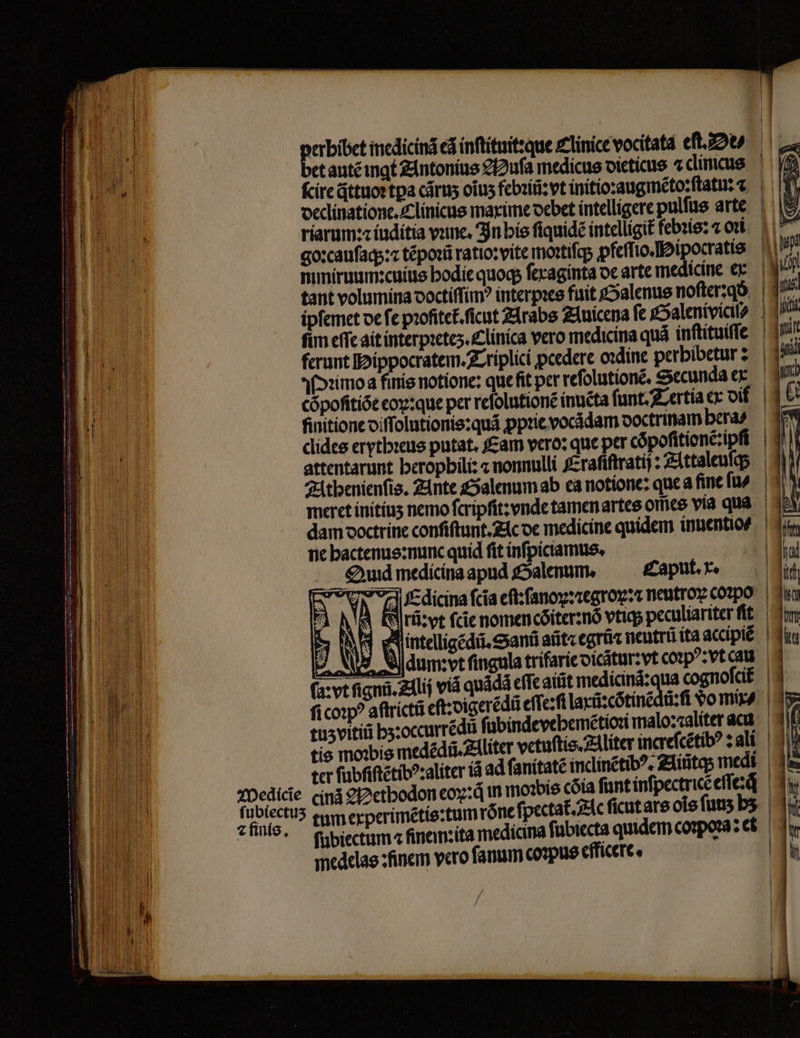 perhibet medicinā eā inſtituit:que Clinice vocitata eſt. De⸗
bet autē inqt Antonius Muſa medicus dieticus ⁊ clinicus
ſcire q̄ttuor tp̄a cāruꝫ oīuꝫ febriū: vt initio:augmēto:ſtatu: ⁊
declinatione. Clinicus maxime debet intelligere pulſus arte
riarum: ⁊ iuditia vrine. In his ſiquidē intelligit̄ febris: ⁊ ori
go:cauſaqꝫ: ⁊ tēporū ratio: vite mortiſqꝫ ꝓfeſſio. Hipocratis
nimiruum: cuius hodie quoqꝫ ſexaginta de arte medicine ex
tant volumina doctiſſimꝰ interpres fuit Galenus noſter: qđ
ipſemet de ſe profitet̄. ſicut Arabs Auicena ſe Galeniviciſ⸗
ſim eſſe ait interpreteꝫ. Clinica vero medicina quā inſtituiſſe
ferunt Hippocratem. Triplici ꝓcedere ordine perhibetur:
Primo a finis notione: que fit per reſolutionē. Secunda ex
cōpoſitiōe eoꝝ: que per reſolutionē inuēta ſunt. Tertia ex dif
finitione diſſolutionis: quā ꝓprie vocādam doctrinam hera⸗
clides erythreus putat. Eam vero: que per cōpoſitionē: ipſi
attentarunt herophili: ⁊ nonnulli Eraſiſtratij: Attaleuſqꝫ
Athenienſis. Ante Galenum ab ea notione: que a fine ſu⸗
meret initiuꝫ nemo ſcripſit: vnde tamen artes om̄es via qua
dam doctrine conſiſtunt. Ac de medicine quidem inuentio⸗
ne hactenus: nunc quid ſit inſpiciamus.
Quid medicina apud Galenum. Caput. x.
MEdicina ſcīa eſt: ſanoꝝ: ⁊egroꝝ: ⁊ neutroꝝ corpo
rū: vt ſcīe nomen cōiter: nō vtiqꝫ peculiariter ſit
intelligēdū. Sanū aūt⁊ egrū⁊ neutrū ita accipiē
dum: vt ſingula trifarie dicātur: vt corpꝰ: vt cau
ſa: vt ſignū. Alij viā quādā eſſe aiūt medicinā: qua cognoſcit̄
ſi corpꝰ aſtrictū eſt: digerēdū eſſe: ſi laxū: cōtinēdū: ſi v̊o mix⸗
tuꝫ vitiū hꝫ: occurrēdū ſubindevehemētiori malo: ⁊aliter acu
tis morbis medēdū. Aliter vetuſtis. Aliter increſcētibꝰ: ali
ter ſubſiſtētibꝰ: aliter iā ad ſanitatē inclinētibꝰ. Aiūtqꝫ medi
cinā Methodon eoꝝ: q̄ in morbis cōia ſunt inſpectricē eſſe: q̄
tum experimētis: tum rōne ſpectat̄. Ac ſicut ars oīs ſuuꝫ hꝫ
ſubiectum ⁊ finem: ita medicina ſubiecta quidem corpora: et
medelas: finem vero ſanum corpus efficere.
Medicīe
ſubiectuꝫ
⁊ finis.